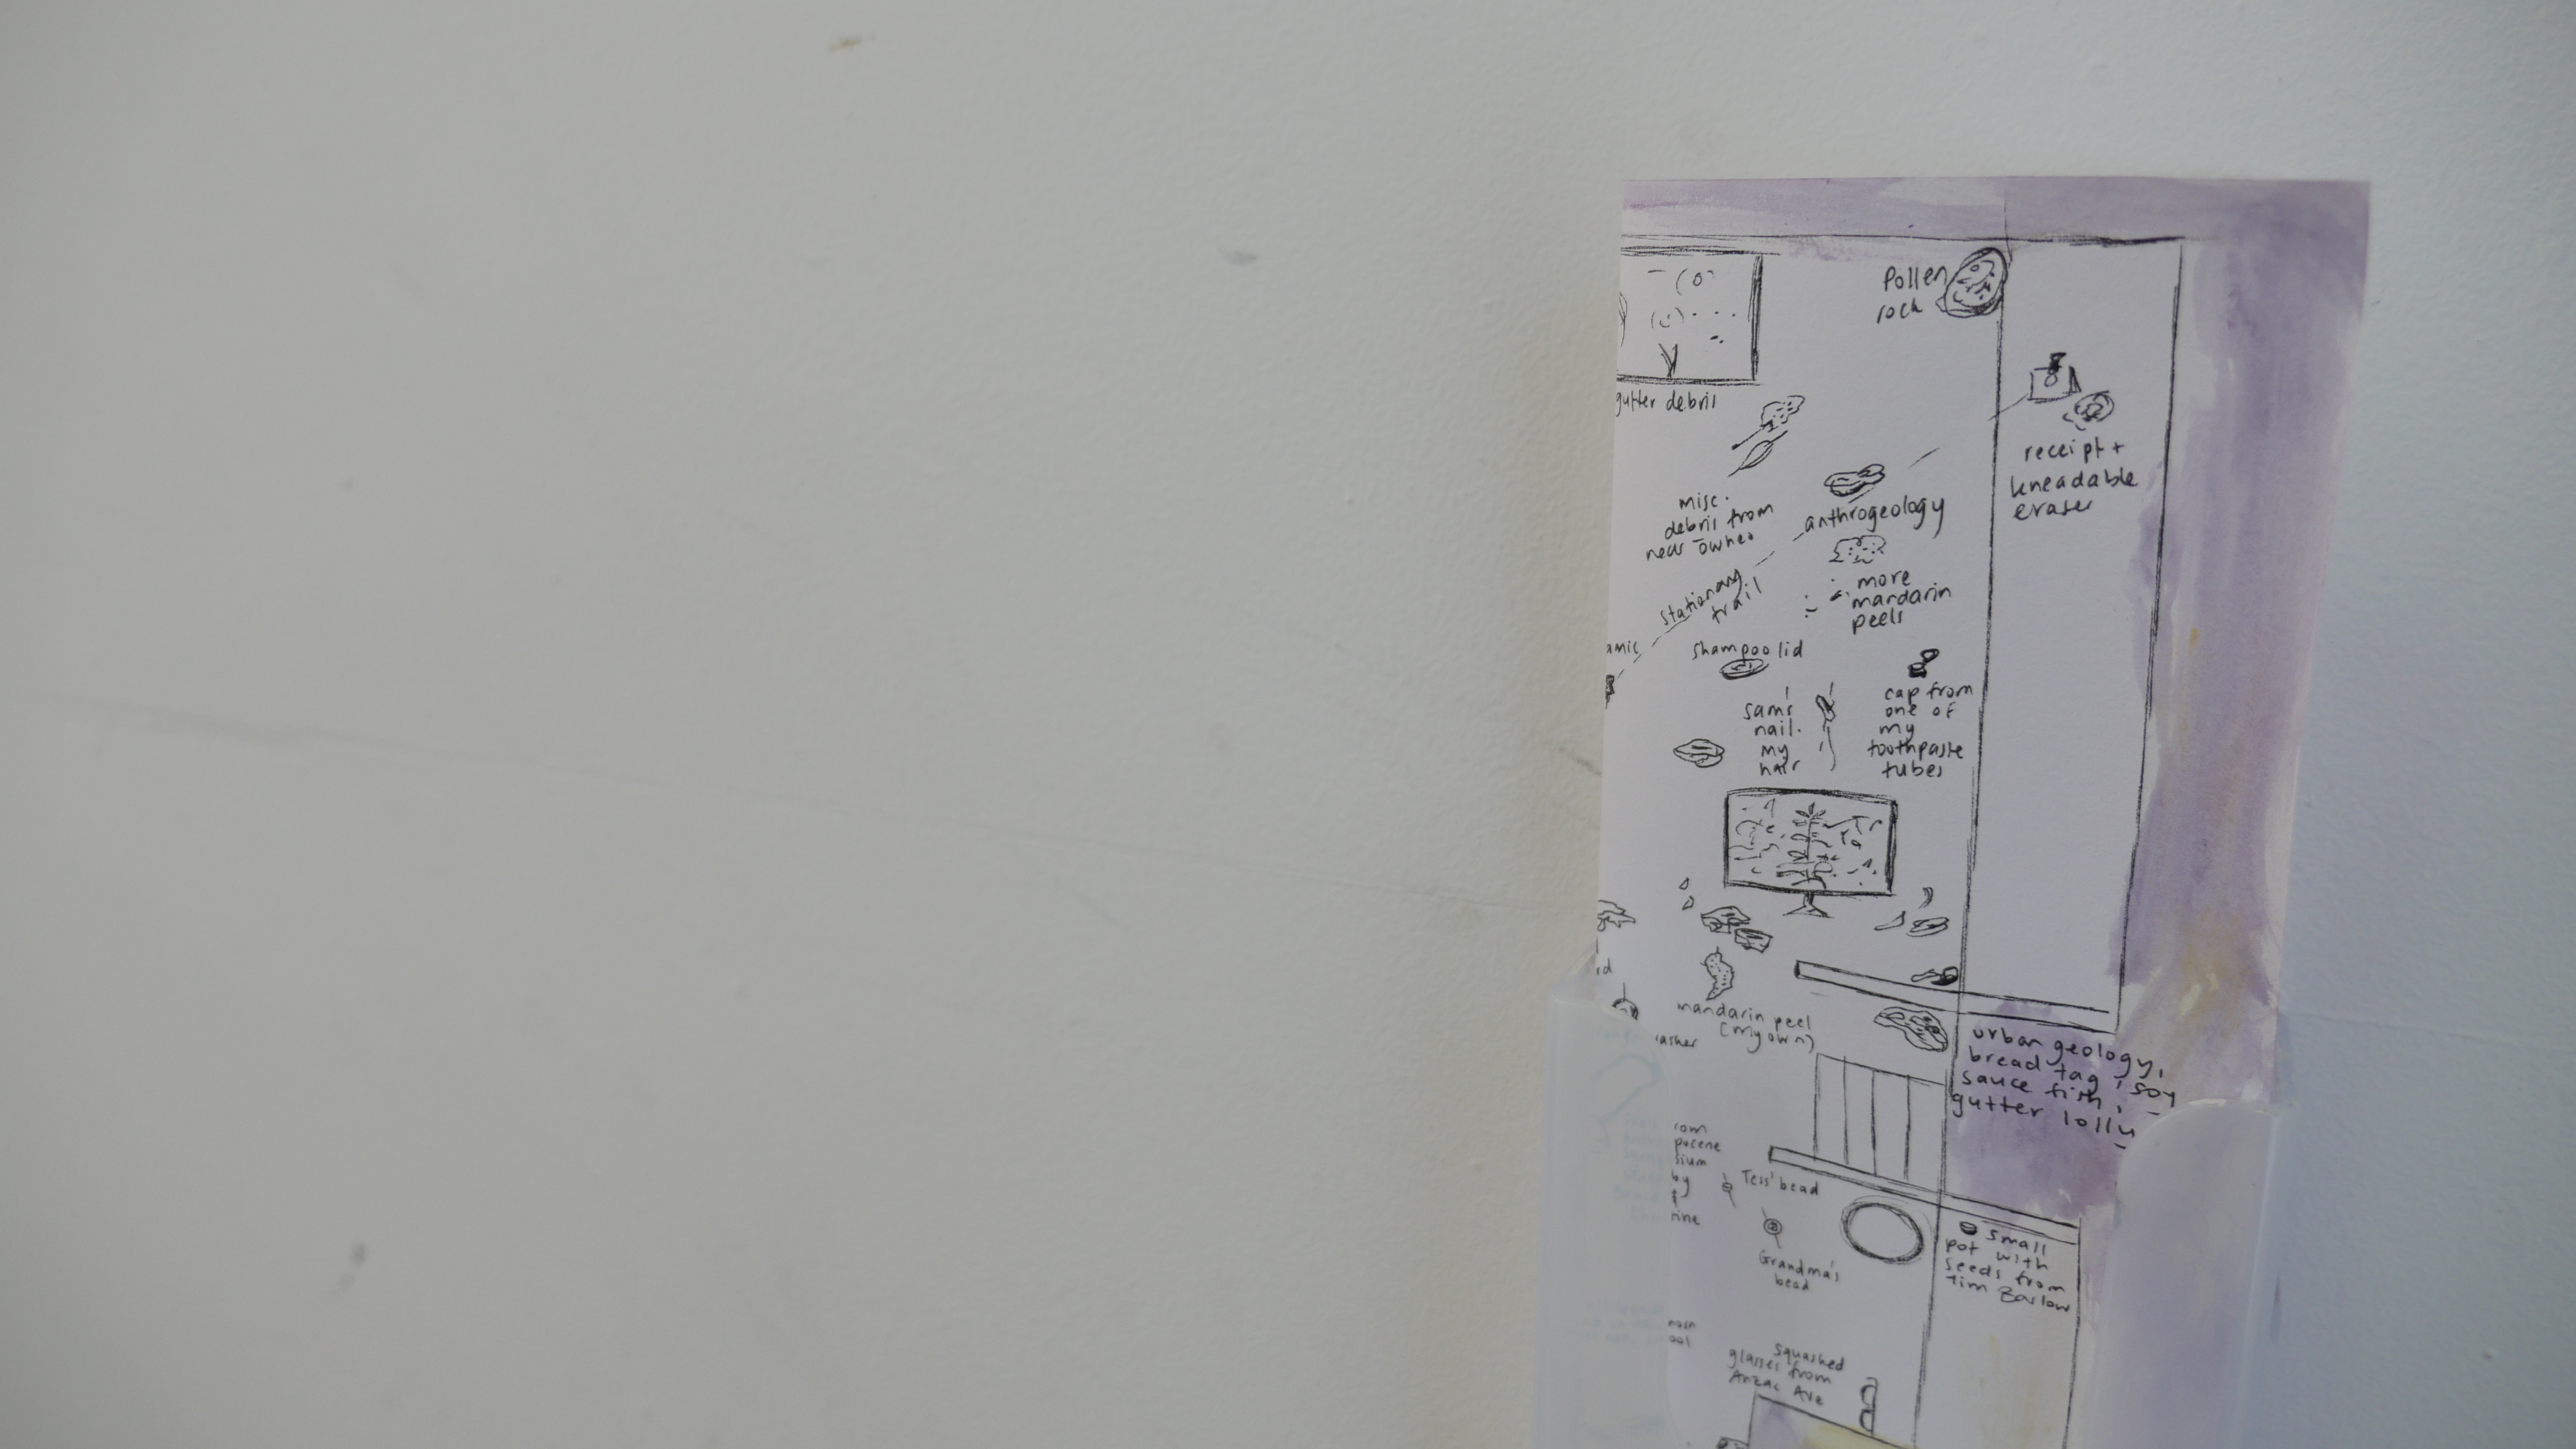 Pollen
rock
gutter debris
receipt +
kneadable
eraser
misc.
debris from
near Ōwheo
anthrogeology
stationary
trail
more
mandarin
peels
amic
shampoo lid
sam's
nail.
my
hair
cap from
one of
my
toothpaste
tubes
mandarin peel
(my own)
asher
urban geology,
bread tag, soy
sauce fish,
gutter lolly
pocene
sium
by
rine
Tess' bead
Grandma's
bead
small
pot with
seeds from
Tim Barlow
squashed
glasses from
Anzac Ave